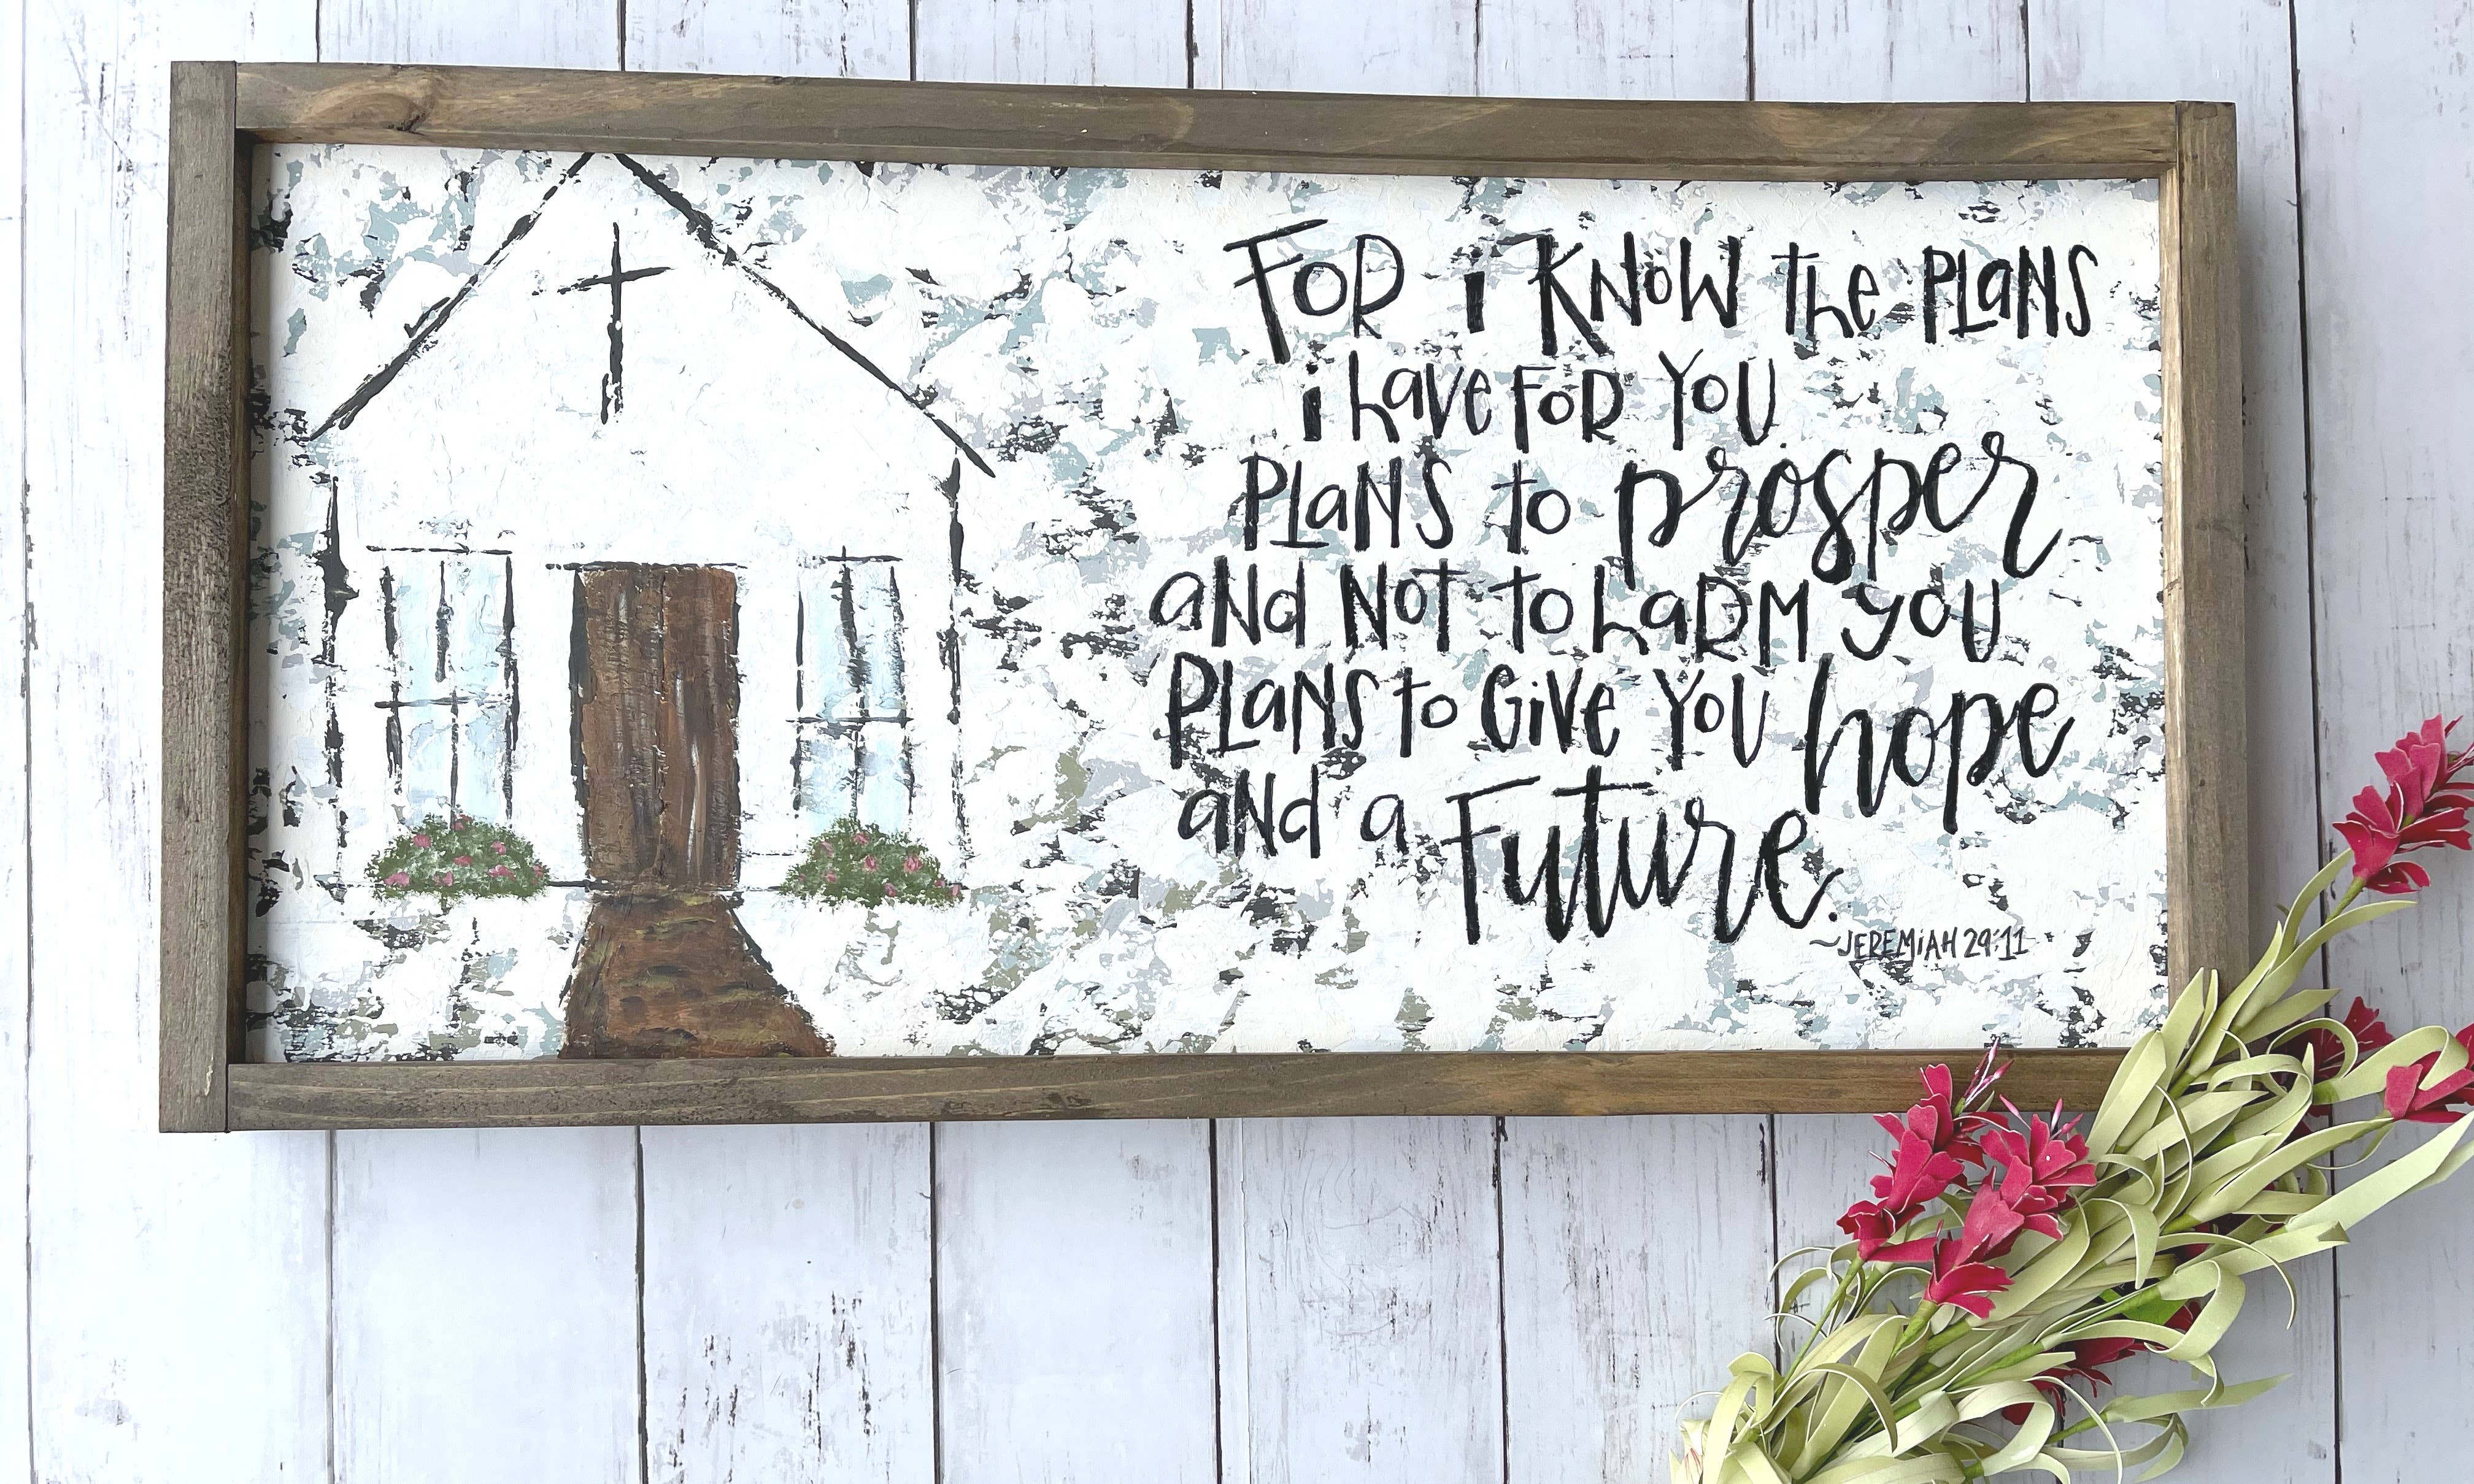 FOR i KNOW the PLaNS
i have FOR YOU
PLaNS to prosper
aNd NOT to haRM you
PLaNS to GiVe YOU hope
aNd a Future.
~JEREMiAH 29:11